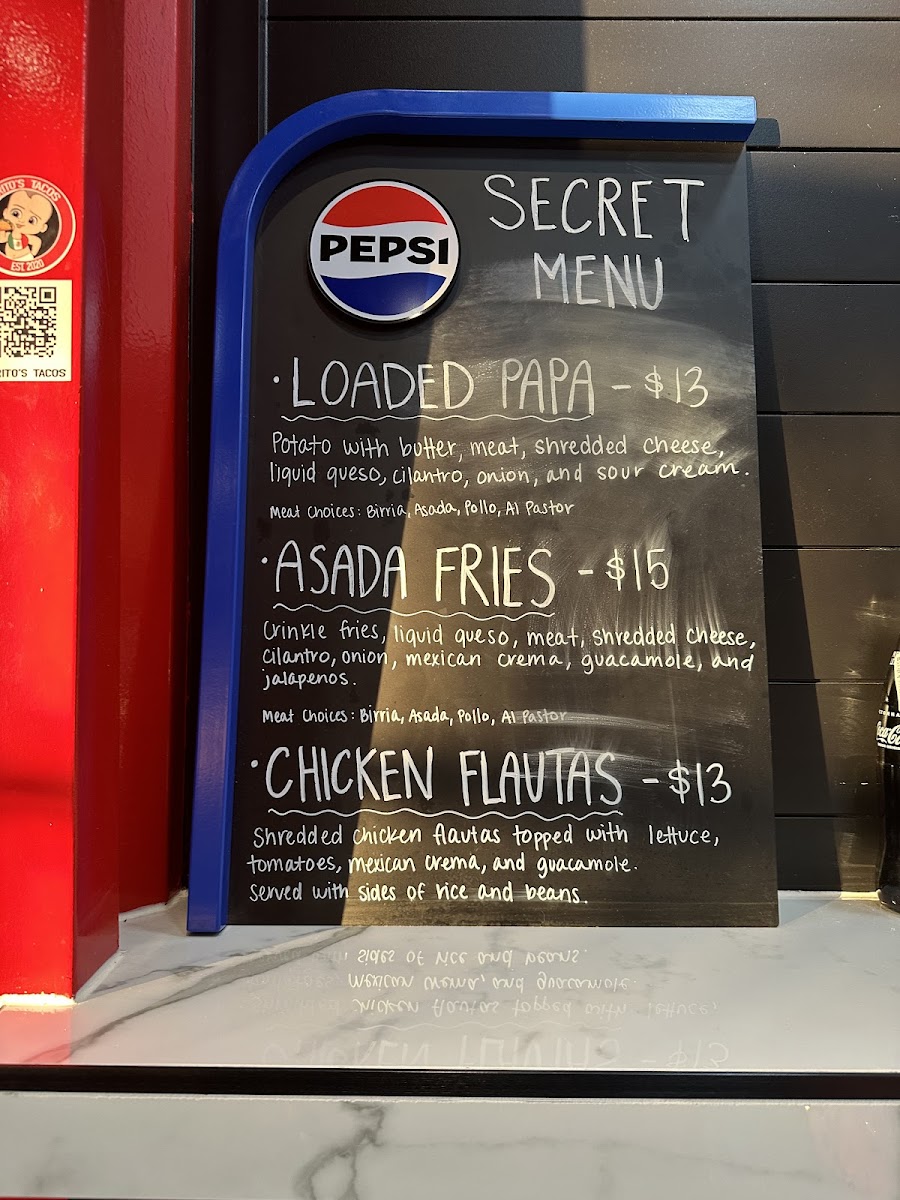 TACOS
EST. 2020
TACOS
PEPSI
SECRET
MENU
· LOADED PAPA - $13
Potato with butter, meat, shredded cheese,
liquid queso, cilantro, onion, and sour cream.
Meat Choices: Birria, Asada, Pollo, Al Pastor
· ASADA FRIES - $15
Crinkle fries, liquid queso, meat, shredded cheese,
cilantro, onion, mexican crema, guacamole, and
jalapenos.
Meat Choices: Birria, Asada, Pollo, Al Pastor
· CHICKEN FLAUTAS - $13
Shredded chicken flautas topped with lettuce,
tomatoes, mexican crema, and guacamole.
Served with sides of rice and beans.